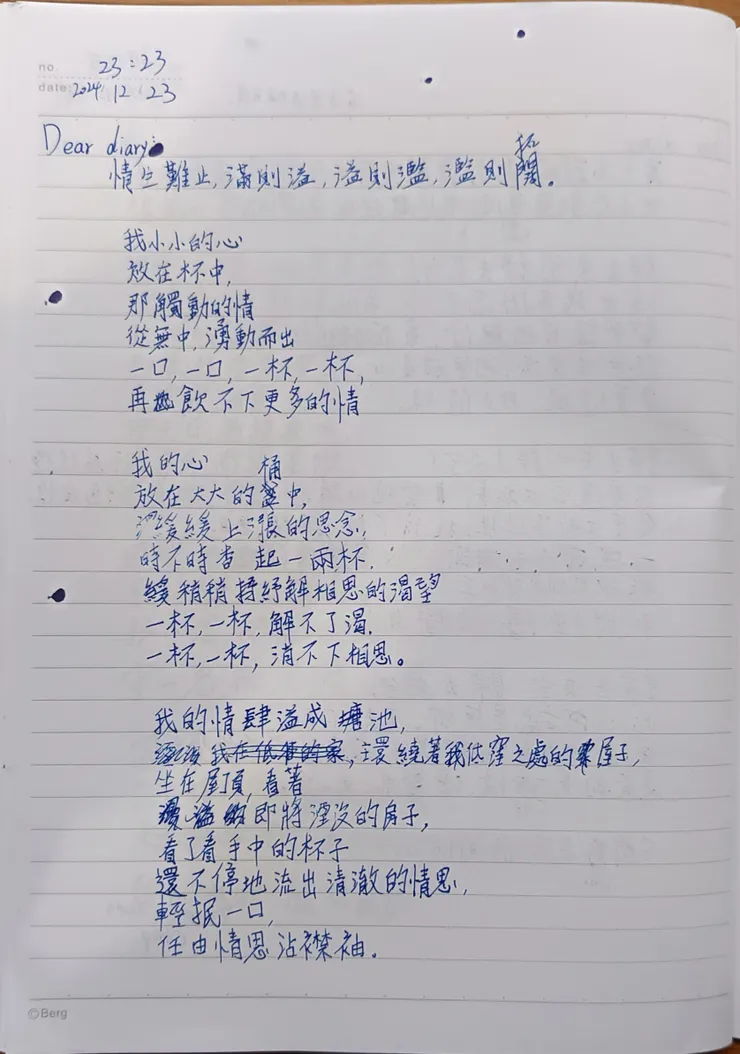 no. 23:23
date: 2024.12.23
Dear diary:
拓
情生難止,滿則溢,溢則濫,濫則闊。
我小小的心
放在杯中,
那觸動的情
從無中,湧動而出
一口,一口,一杯,一杯,
再飲不下更多的情
我的心 桶
放在大大的盆中,
緩緩上漲的思念,
時不時舀起一兩杯.
稍稍紓解相思的渴望
一杯,一杯,解不了渴.
一杯,一杯,消不下相思。
我的情肆溢成塘池,
我在低窪的家,環繞著我低窪之處的屋子,
坐在屋頂,看著
即將淹沒的房子,
看了看手中的杯子
還不停地流出清澈的情思,
輕抿一口,
任由情思沾襟袖。
©Berg